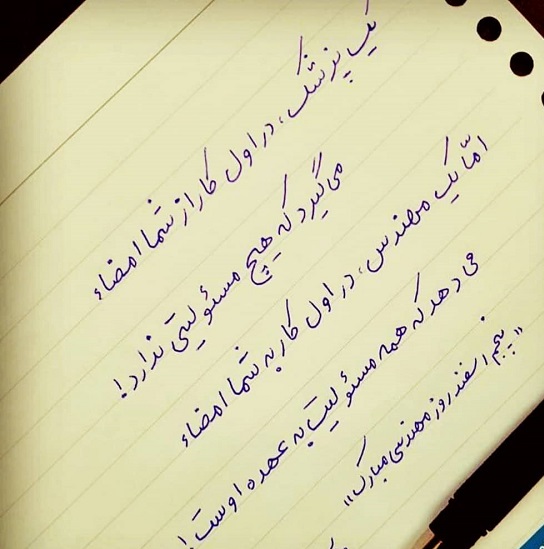 یک پزشک، در اول کار از شما امضاء
می‌گیرد که هیچ مسئولیتی ندارد!
امّا یک مهندس، در اول کار به شما امضاء
می‌دهد که همه مسئولیت به عهده اوست!
"پنجم اسفند روز مهندسی مبارک"